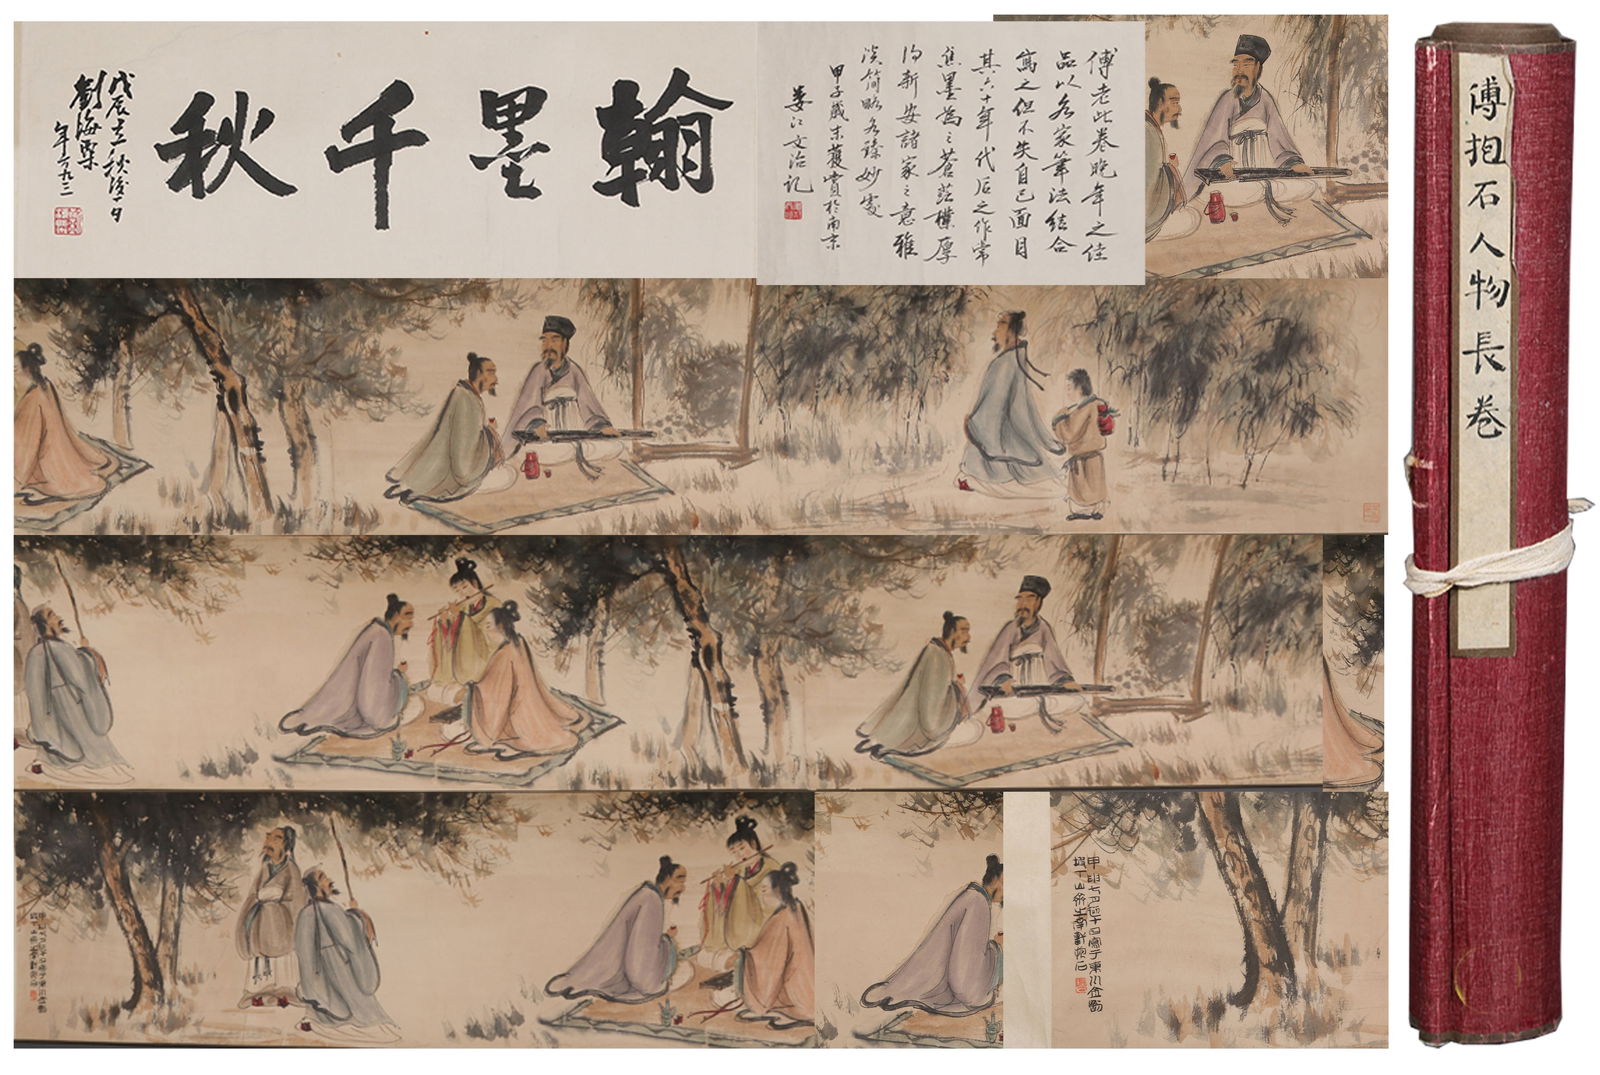 翰墨千秋
戊辰立秋後一夕
劉海粟
年方九三
傅老此卷晚年之佳
品以名家筆法結合
寫之但不失自己面目
其六十年代后之作常
焦墨為之蒼茫樸厚
得新安諸家之意雅
淡簡略各臻妙處
甲子歲末獲賞於南京
婁江文治記
傅抱石人物長卷